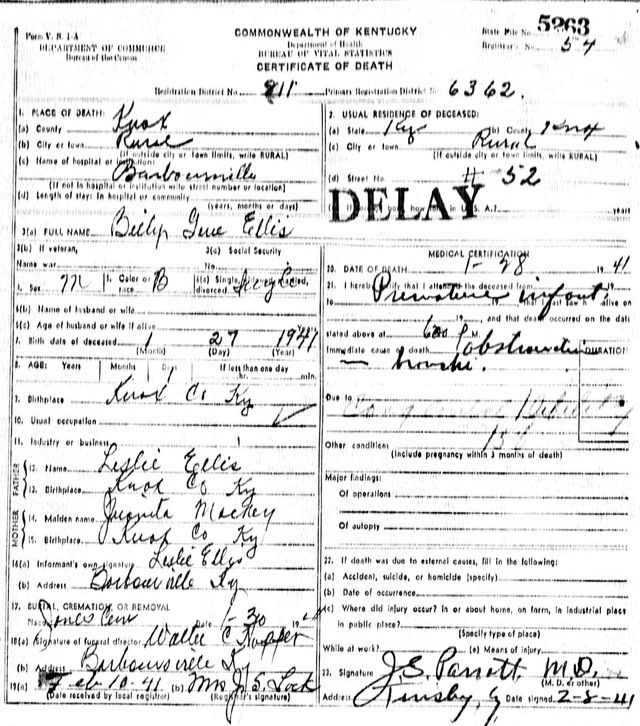 Form V. S. 1-A
DEPARTMENT OF COMMERCE
Bureau of the Census
COMMONWEALTH OF KENTUCKY
Department of Health
BUREAU OF VITAL STATISTICS
CERTIFICATE OF DEATH
State File No. 5263
Registrar's No. 54
Registration District No. 911 Primary Registration District No. 6362.
1. PLACE OF DEATH:
(a) County Knox
(b) City or town Rural
(If outside city or town limits, write RURAL)
(c) Name of hospital or institution:
Barbourville
(If not in hospital or institution write street number or location)
(d) Length of stay: In hospital or community
(years, months or days)
2. USUAL RESIDENCE OF DECEASED:
(a) State Ky (b) County Knox
(c) City or town Rural
(If outside city or town limits, write RURAL)
(d) Street No. # 52
U. S. A.? years
DELAY
3(a) FULL NAME Billy Gene Ellis
3(b) If veteran, 3(c) Social Security
Name war No.
4. Sex M 5. Color or race B 6(a) Single, married, divorced Single
6(b) Name of husband or wife
6(c) Age of husband or wife if alive
7. Birth date of deceased 1 27 1941
(Month) (Day) (Year)
8. AGE: Years Months Days If less than one day
hr. min.
9. Birthplace Knox Co Ky
10. Usual occupation
11. Industry or business
FATHER
12. Name Leslie Ellis
13. Birthplace Knox Co Ky
MOTHER
14. Maiden name Juanita Mackey
15. Birthplace Knox Co Ky
16(a) Informant's own signature Leslie Ellis
(b) Address Barbourville Ky
17. BURIAL, CREMATION, OR REMOVAL
Place Cem Date 1-30 19
18(a) Signature of funeral director Walter C Hopper
(b) Address Barbourville Ky
19(a) Feb 10-41 (b) Mrs J. S. Lock
(Date received by local registrar) (Registrar's signature)
MEDICAL CERTIFICATION
20. DATE OF DEATH 1-28 1941
21. I hereby certify that I attended the deceased from
Premature infant
to 19 , that I last saw h alive on
19 , and that death occurred on the date
stated above at 600 P M.
Immediate cause of death DURATION
Due to Congenital Debility
Other conditions
(Include pregnancy within 3 months of death)
Major findings:
Of operations
Of autopsy
22. If death was due to external causes, fill in the following:
(a) Accident, suicide, or homicide (specify)
(b) Date of occurrence
(c) Where did injury occur? In or about home, on farm, in industrial place
in public place?
(Specify type of place)
While at work? (e) Means of injury
23. Signature J. S. Parrott M.D.
(M. D. or other)
Address Date signed 2-8-41